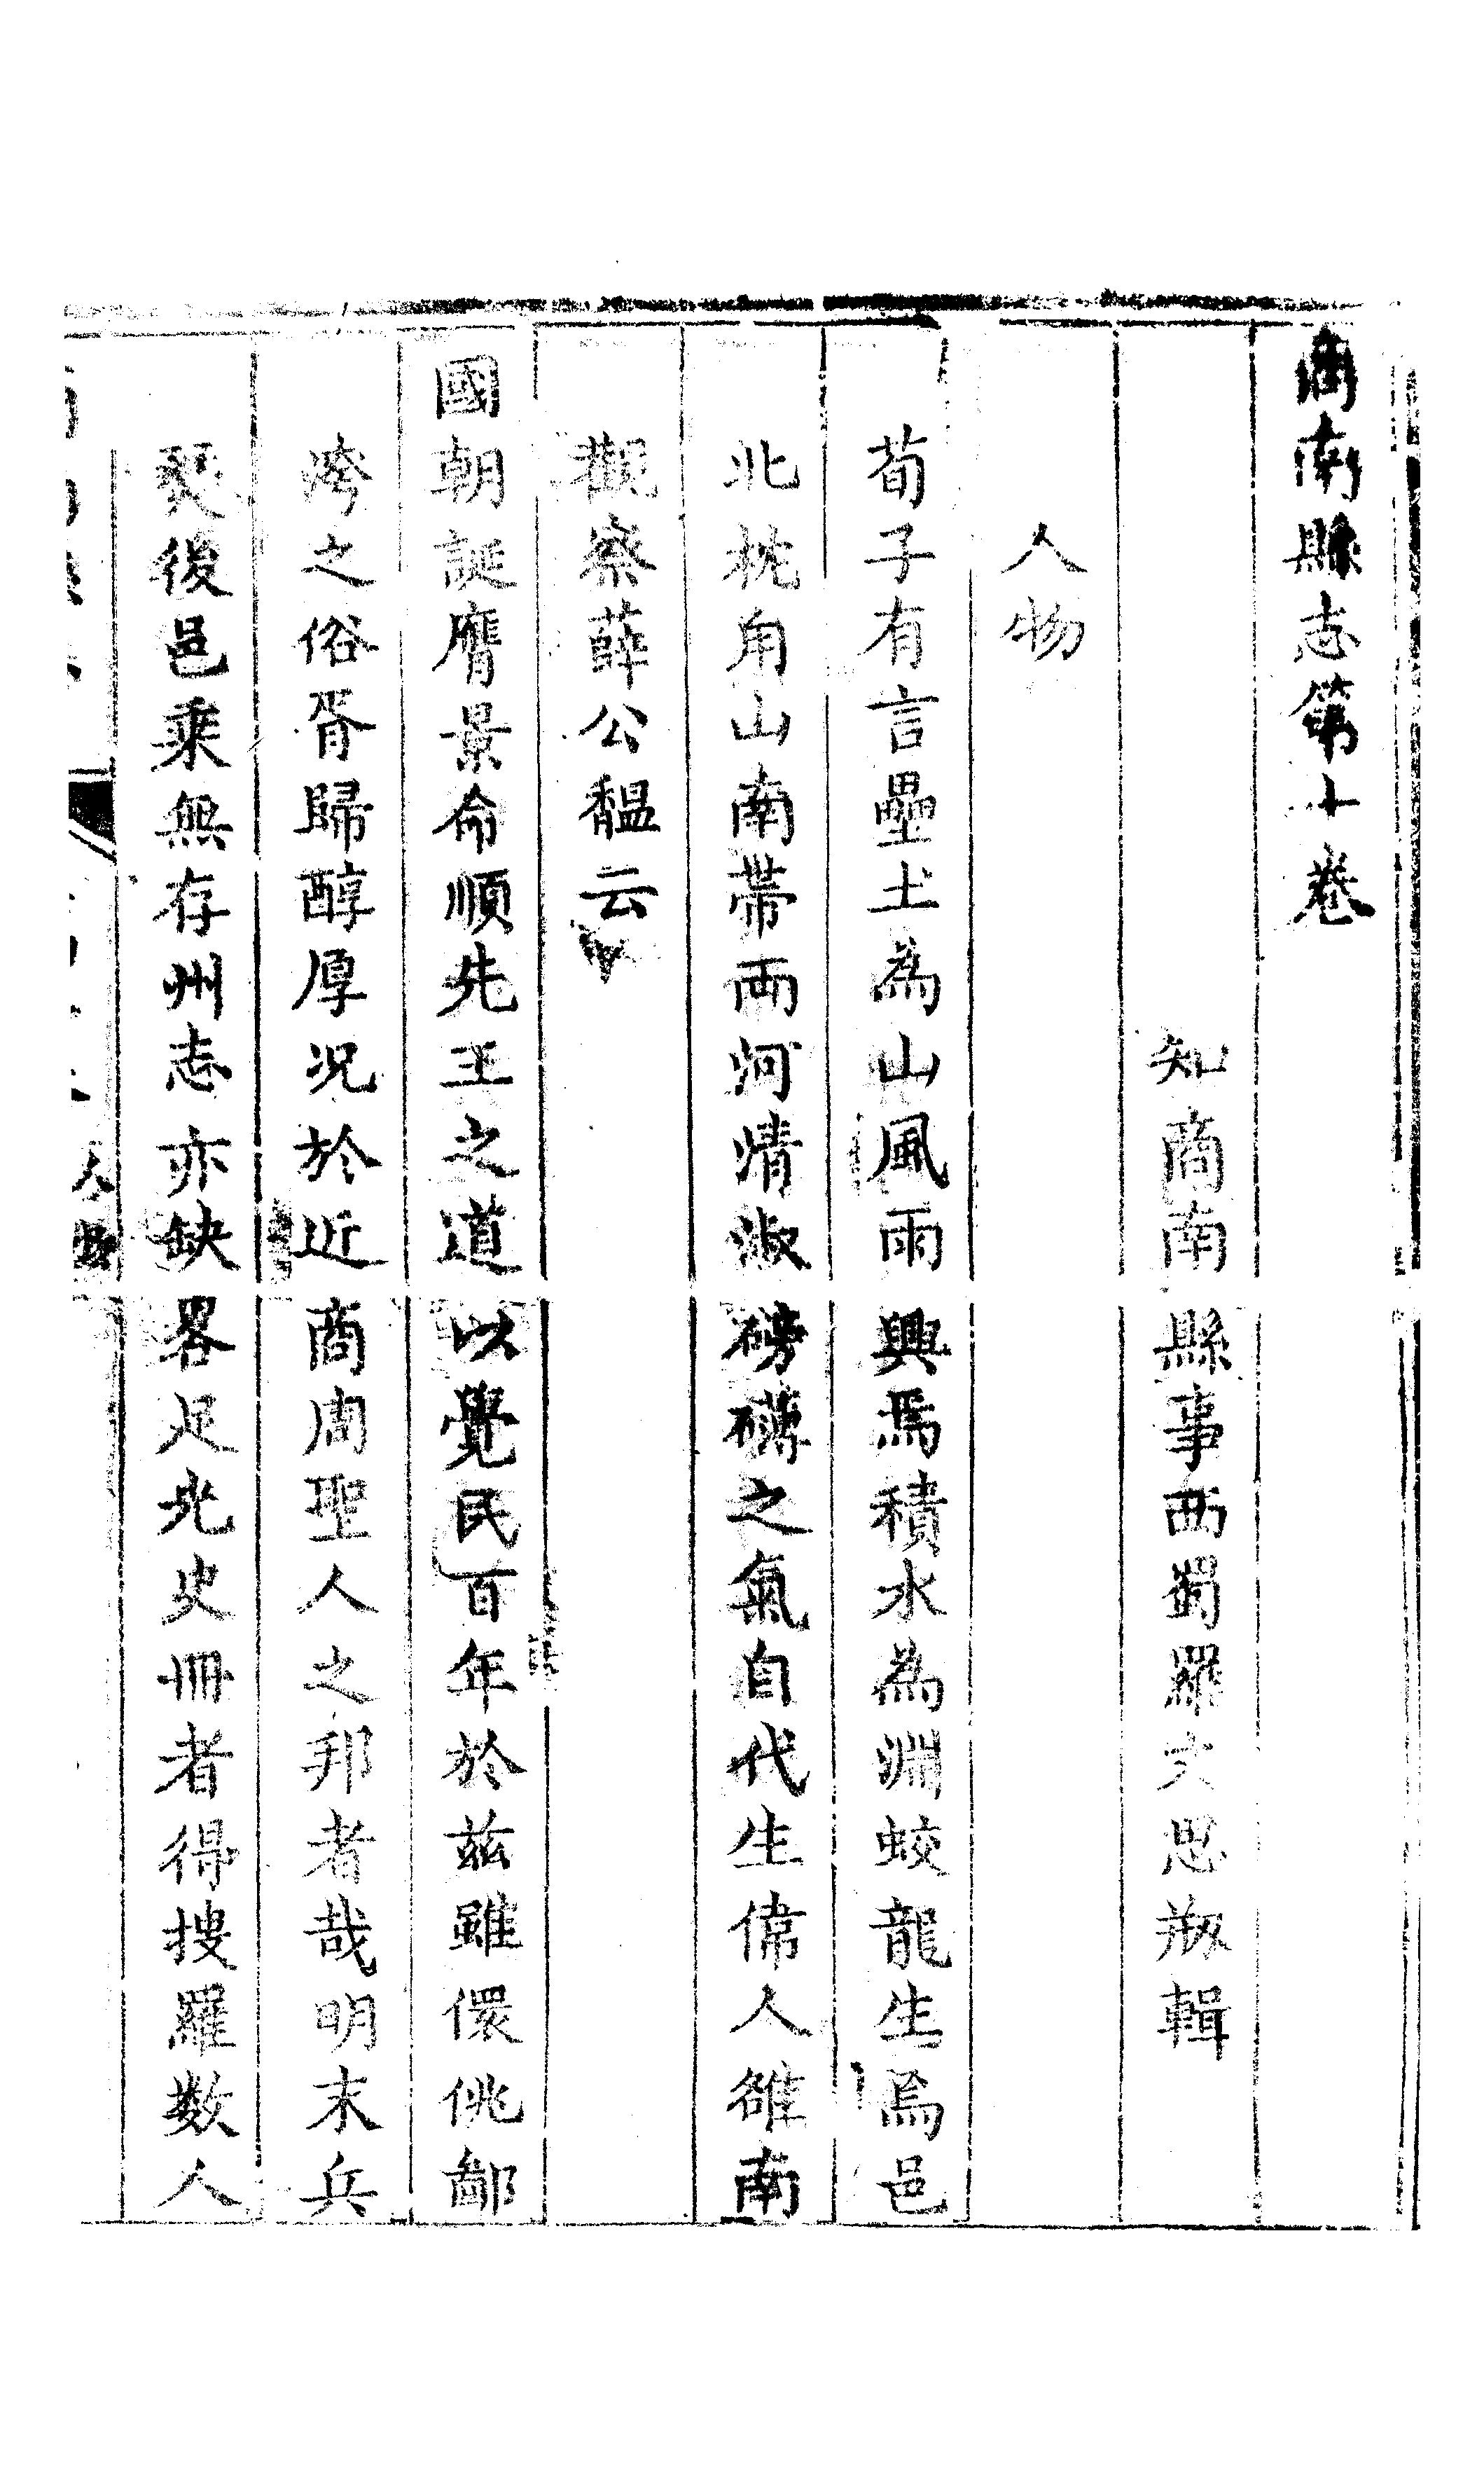 商南縣志第十卷
知商南縣事西蜀羅文思敬輯
人物
荀子有言壘土為山風雨興焉積水為淵蛟龍生焉邑
北枕角山南帶兩河清淑磅礴之氣自代生偉人雒南
觀察薛公韞云
國朝誕膺景命順先王之道以覺民百年於茲雖儇佻鄙
之俗胥歸醇厚況於近商周聖人之邦者哉明末兵
燹後邑乘無存州志亦缺畧足光史冊者得搜羅數人